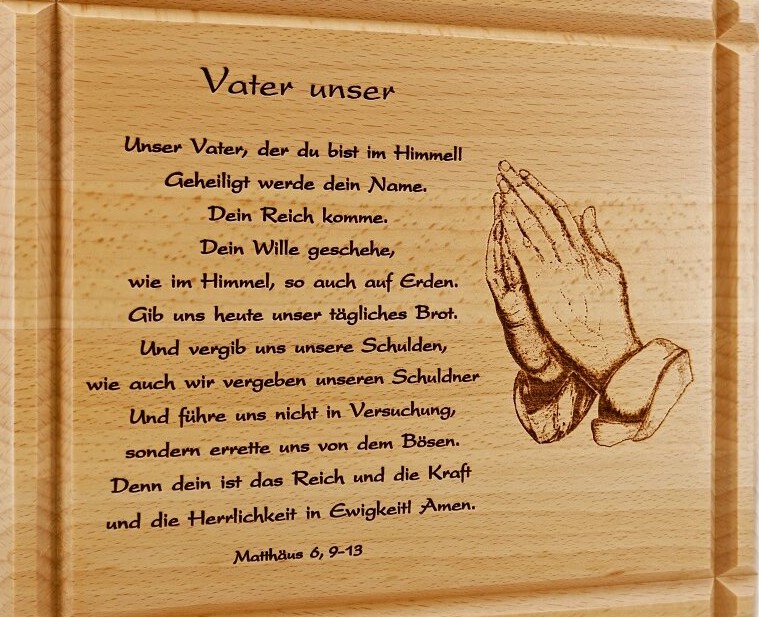 Vater unser
Unser Vater, der du bist im Himmel!
Geheiligt werde dein Name.
Dein Reich komme.
Dein Wille geschehe,
wie im Himmel, so auch auf Erden.
Gib uns heute unser tägliches Brot.
Und vergib uns unsere Schulden,
wie auch wir vergeben unseren Schuldner
Und führe uns nicht in Versuchung,
sondern errette uns von dem Bösen.
Denn dein ist das Reich und die Kraft
und die Herrlichkeit in Ewigkeit! Amen.
Matthäus 6, 9-13